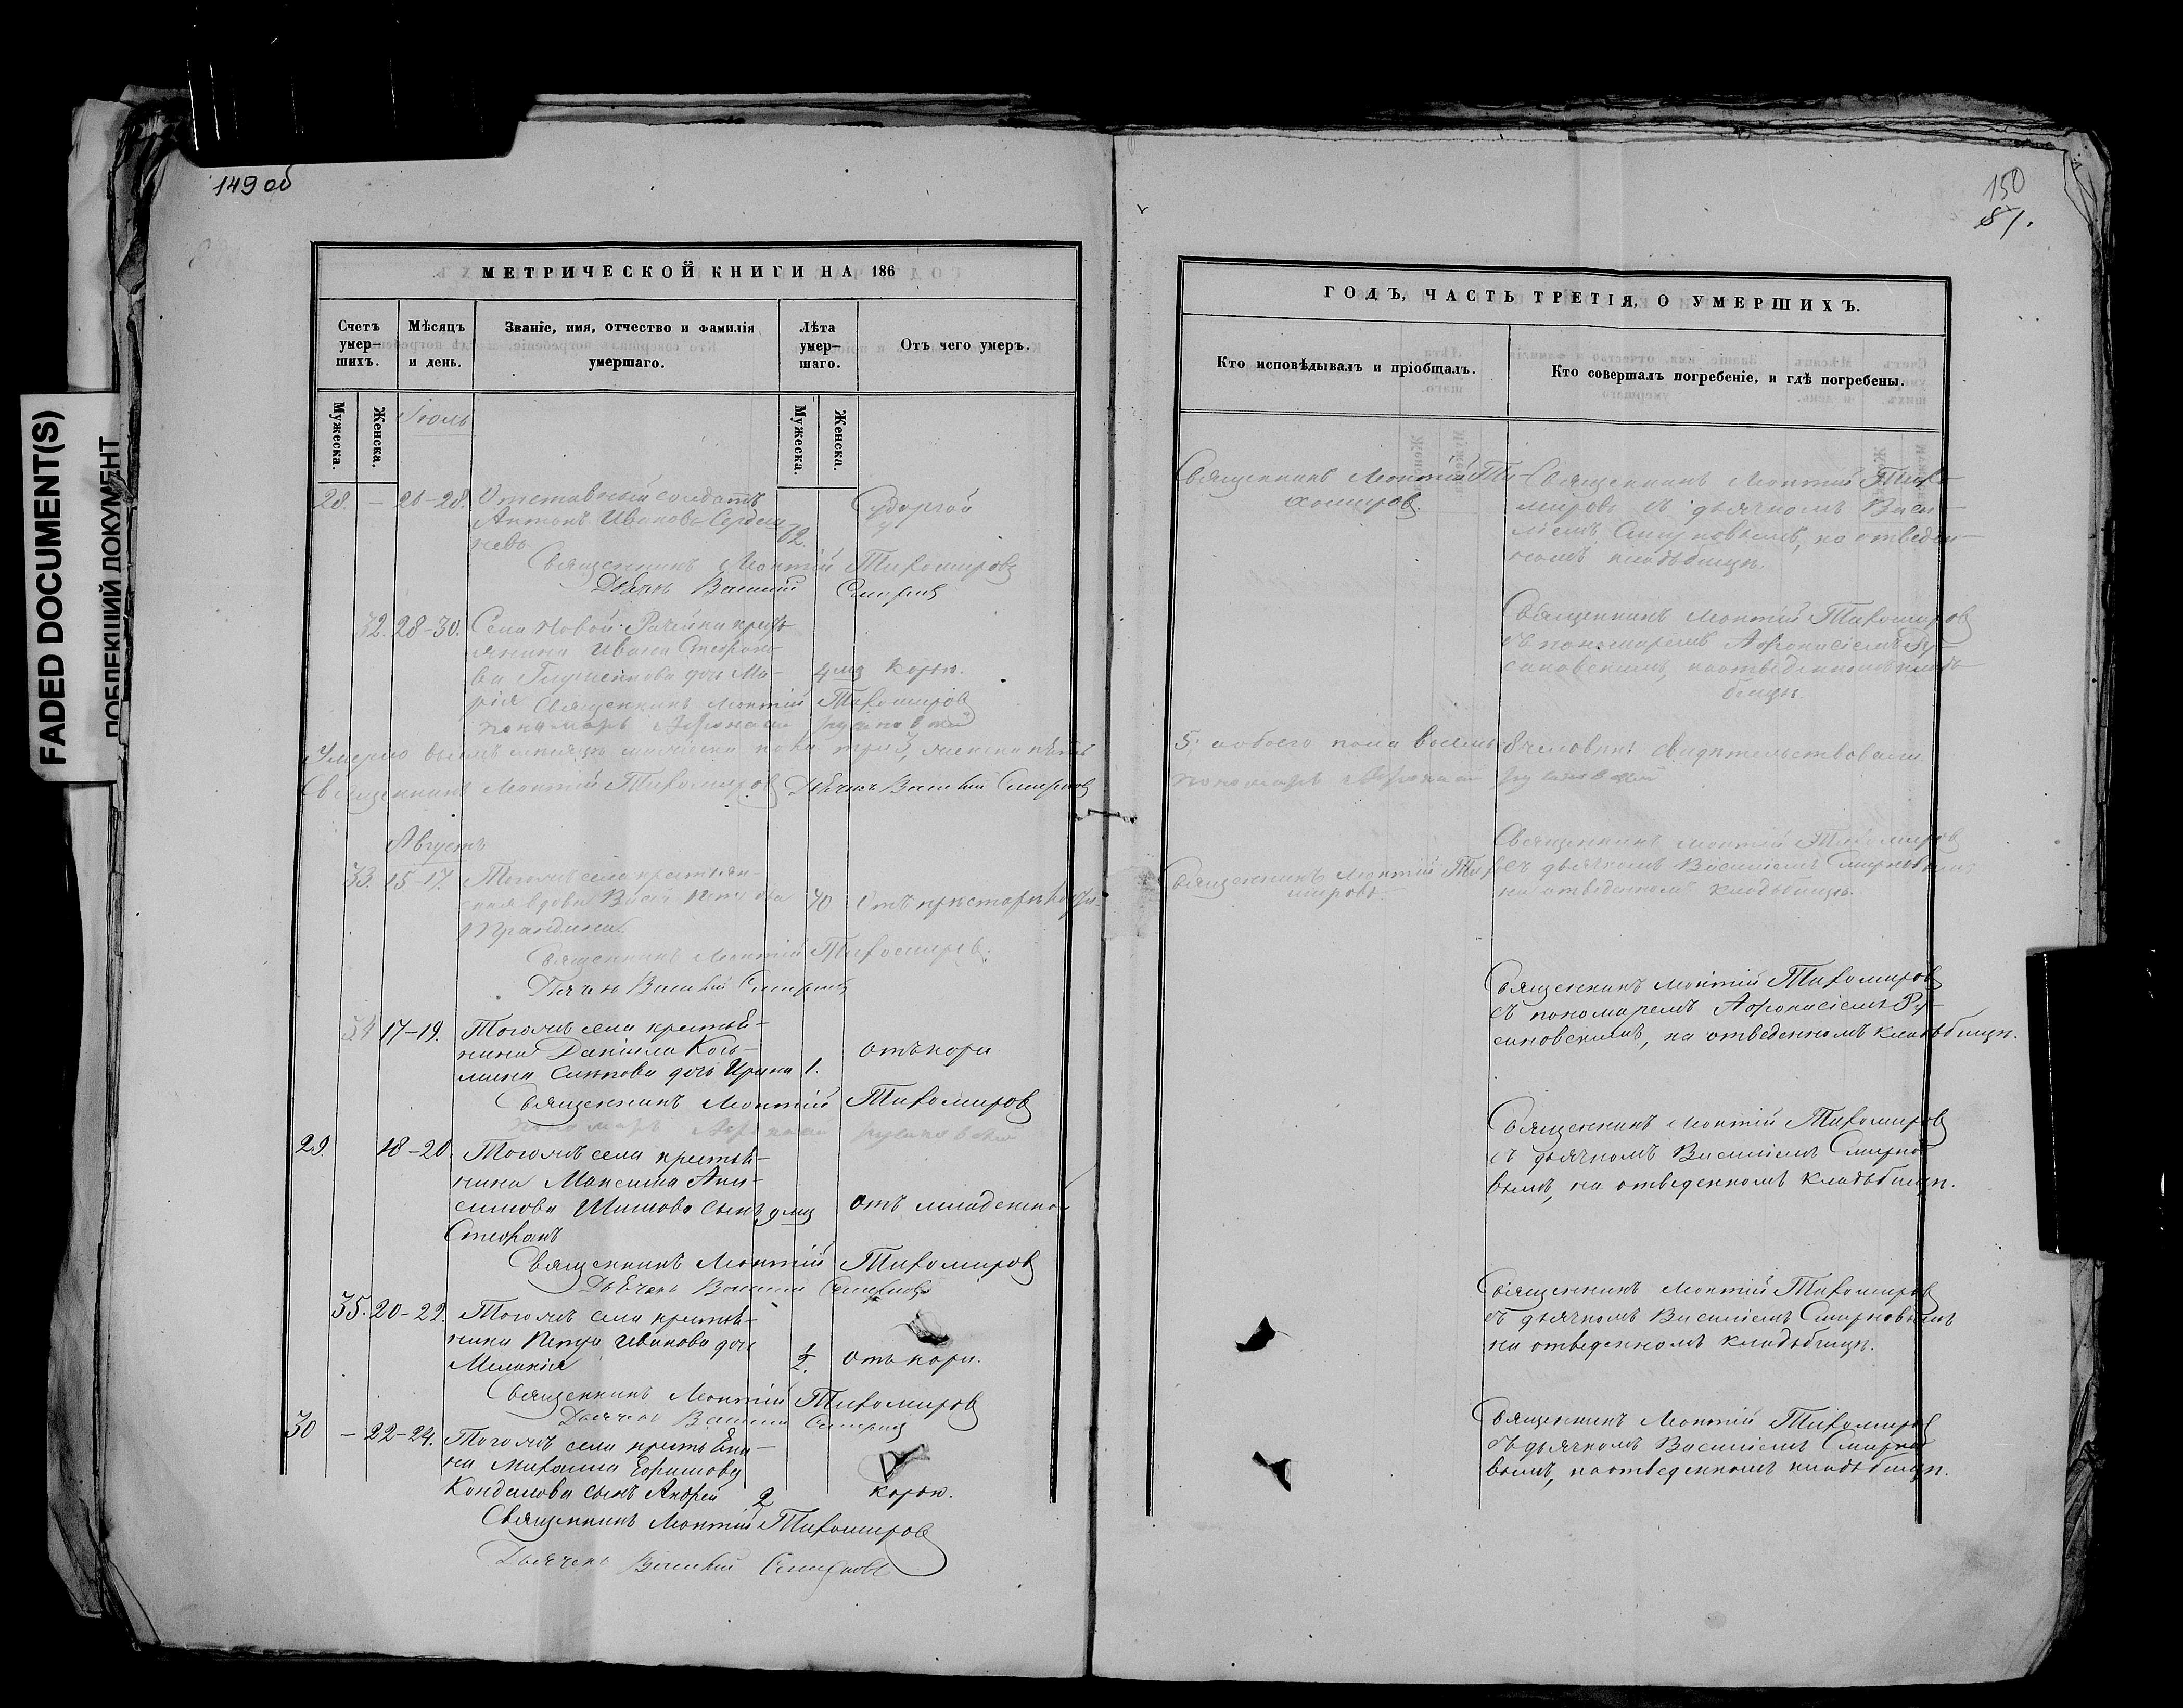 149 об
150
81.
FADED DOCUMENT(S)
ПОБЛЕКШИЙ ДОКУМЕНТ
МЕТРИЧЕСКОЙ КНИГИ НА 186
Счетъ умер-шихъ.
Мѣсяцъ и день.
Званіе, имя, отчество и фамилія умершаго.
Лѣта умер-шаго.
Отъ чего умеръ.
Мужеска.
Женска.
Мужеска.
Женска.
Іюль
28. — 26-28. Отставный солдатъ
Антонъ Ивановъ
62.
Священникъ Леонтій Тихомировъ
Дьячекъ Василій Смирновъ
32. 28-30. Села Новой Рачейки крестьянина Ивана Стефанова дочь Марія
4 мц Корью.
Священникъ Леонтій Тихомировъ
Пономарь Афанасій Русановскій
Умерло въ іюлѣ мѣсяцѣ мужеска пола три 3, женска пять
Священникъ Леонтій Тихомировъ Дьячекъ Василій Смирновъ
Августъ
33. 15-17. Тогоже села крестьянская вдова
70 Отъ престарѣлости
Священникъ Леонтій Тихомировъ.
Дьячекъ Василій Смирновъ
34 17-19. Тогоже села крестья-
нина Даніила Кось-
мина дочь Ирина 1. отъ кори
Священникъ Леонтій Тихомировъ
Пономарь Афанасій Русановскій
29. 18-20. Тогоже села крестья-
нина Максима Ани-
симова Шишова сынъ 9 мц отъ младенческой
Стефанъ
Священникъ Леонтій Тихомировъ
Дьячекъ Василій Смирновъ
35. 20-22. Тогоже села крестья-
нина Петра Иванова дочь
Меланія 1/2. отъ кори.
Священникъ Леонтій Тихомировъ
Дьячекъ Василій Смирновъ
30 — 22-24. Тогоже села крестьяни-
на Михаила Ефимова
Кондалова сынъ Андрей 2 корью.
Священникъ Леонтій Тихомировъ
Дьячекъ Василій Смирновъ
ГОДЪ, ЧАСТЬ ТРЕТІЯ, О УМЕРШИХЪ.
Кто исповѣдывалъ и пріобщалъ.
Кто совершалъ погребеніе, и гдѣ погребены.
Священникъ Леонтій Ти-
хомировъ.
Священникъ Леонтій Тихо-
мировъ съ дьячкомъ Васи-
ліемъ Смирновымъ, на отведен-
номъ кладбищѣ.
Священникъ Леонтій Тихомировъ
съ пономаремъ Афанасіемъ Ру-
сановскимъ, на отведенномъ клад-
бищѣ.
5. обоего пола восемь 8 человѣкъ свидѣтельствовали
Пономарь Афанасій Русановскій
Священникъ Леонтій Тихо-
мировъ
Священникъ Леонтій Тихомировъ
съ дьячкомъ Василіемъ Смирновымъ
на отведенномъ кладбищѣ.
Священникъ Леонтій Тихомировъ
съ пономаремъ Афанасіемъ Ру-
сановскимъ, на отведенномъ кладбищѣ.
Священникъ Леонтій Тихомировъ
съ дьячкомъ Василіемъ Смирно-
вымъ, на отведенномъ кладбищѣ.
Священникъ Леонтій Тихомировъ
съ дьячкомъ Василіемъ Смирновымъ
на отведенномъ кладбищѣ.
Священникъ Леонтій Тихомировъ
съ дьячкомъ Василіемъ Смирно-
вымъ, на отведенномъ кладбищѣ.